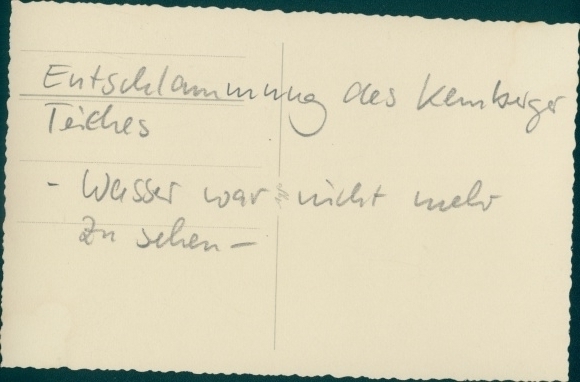 Entschlammung des Kemberger
Teiches
- Wasser war nicht mehr
zu sehen -